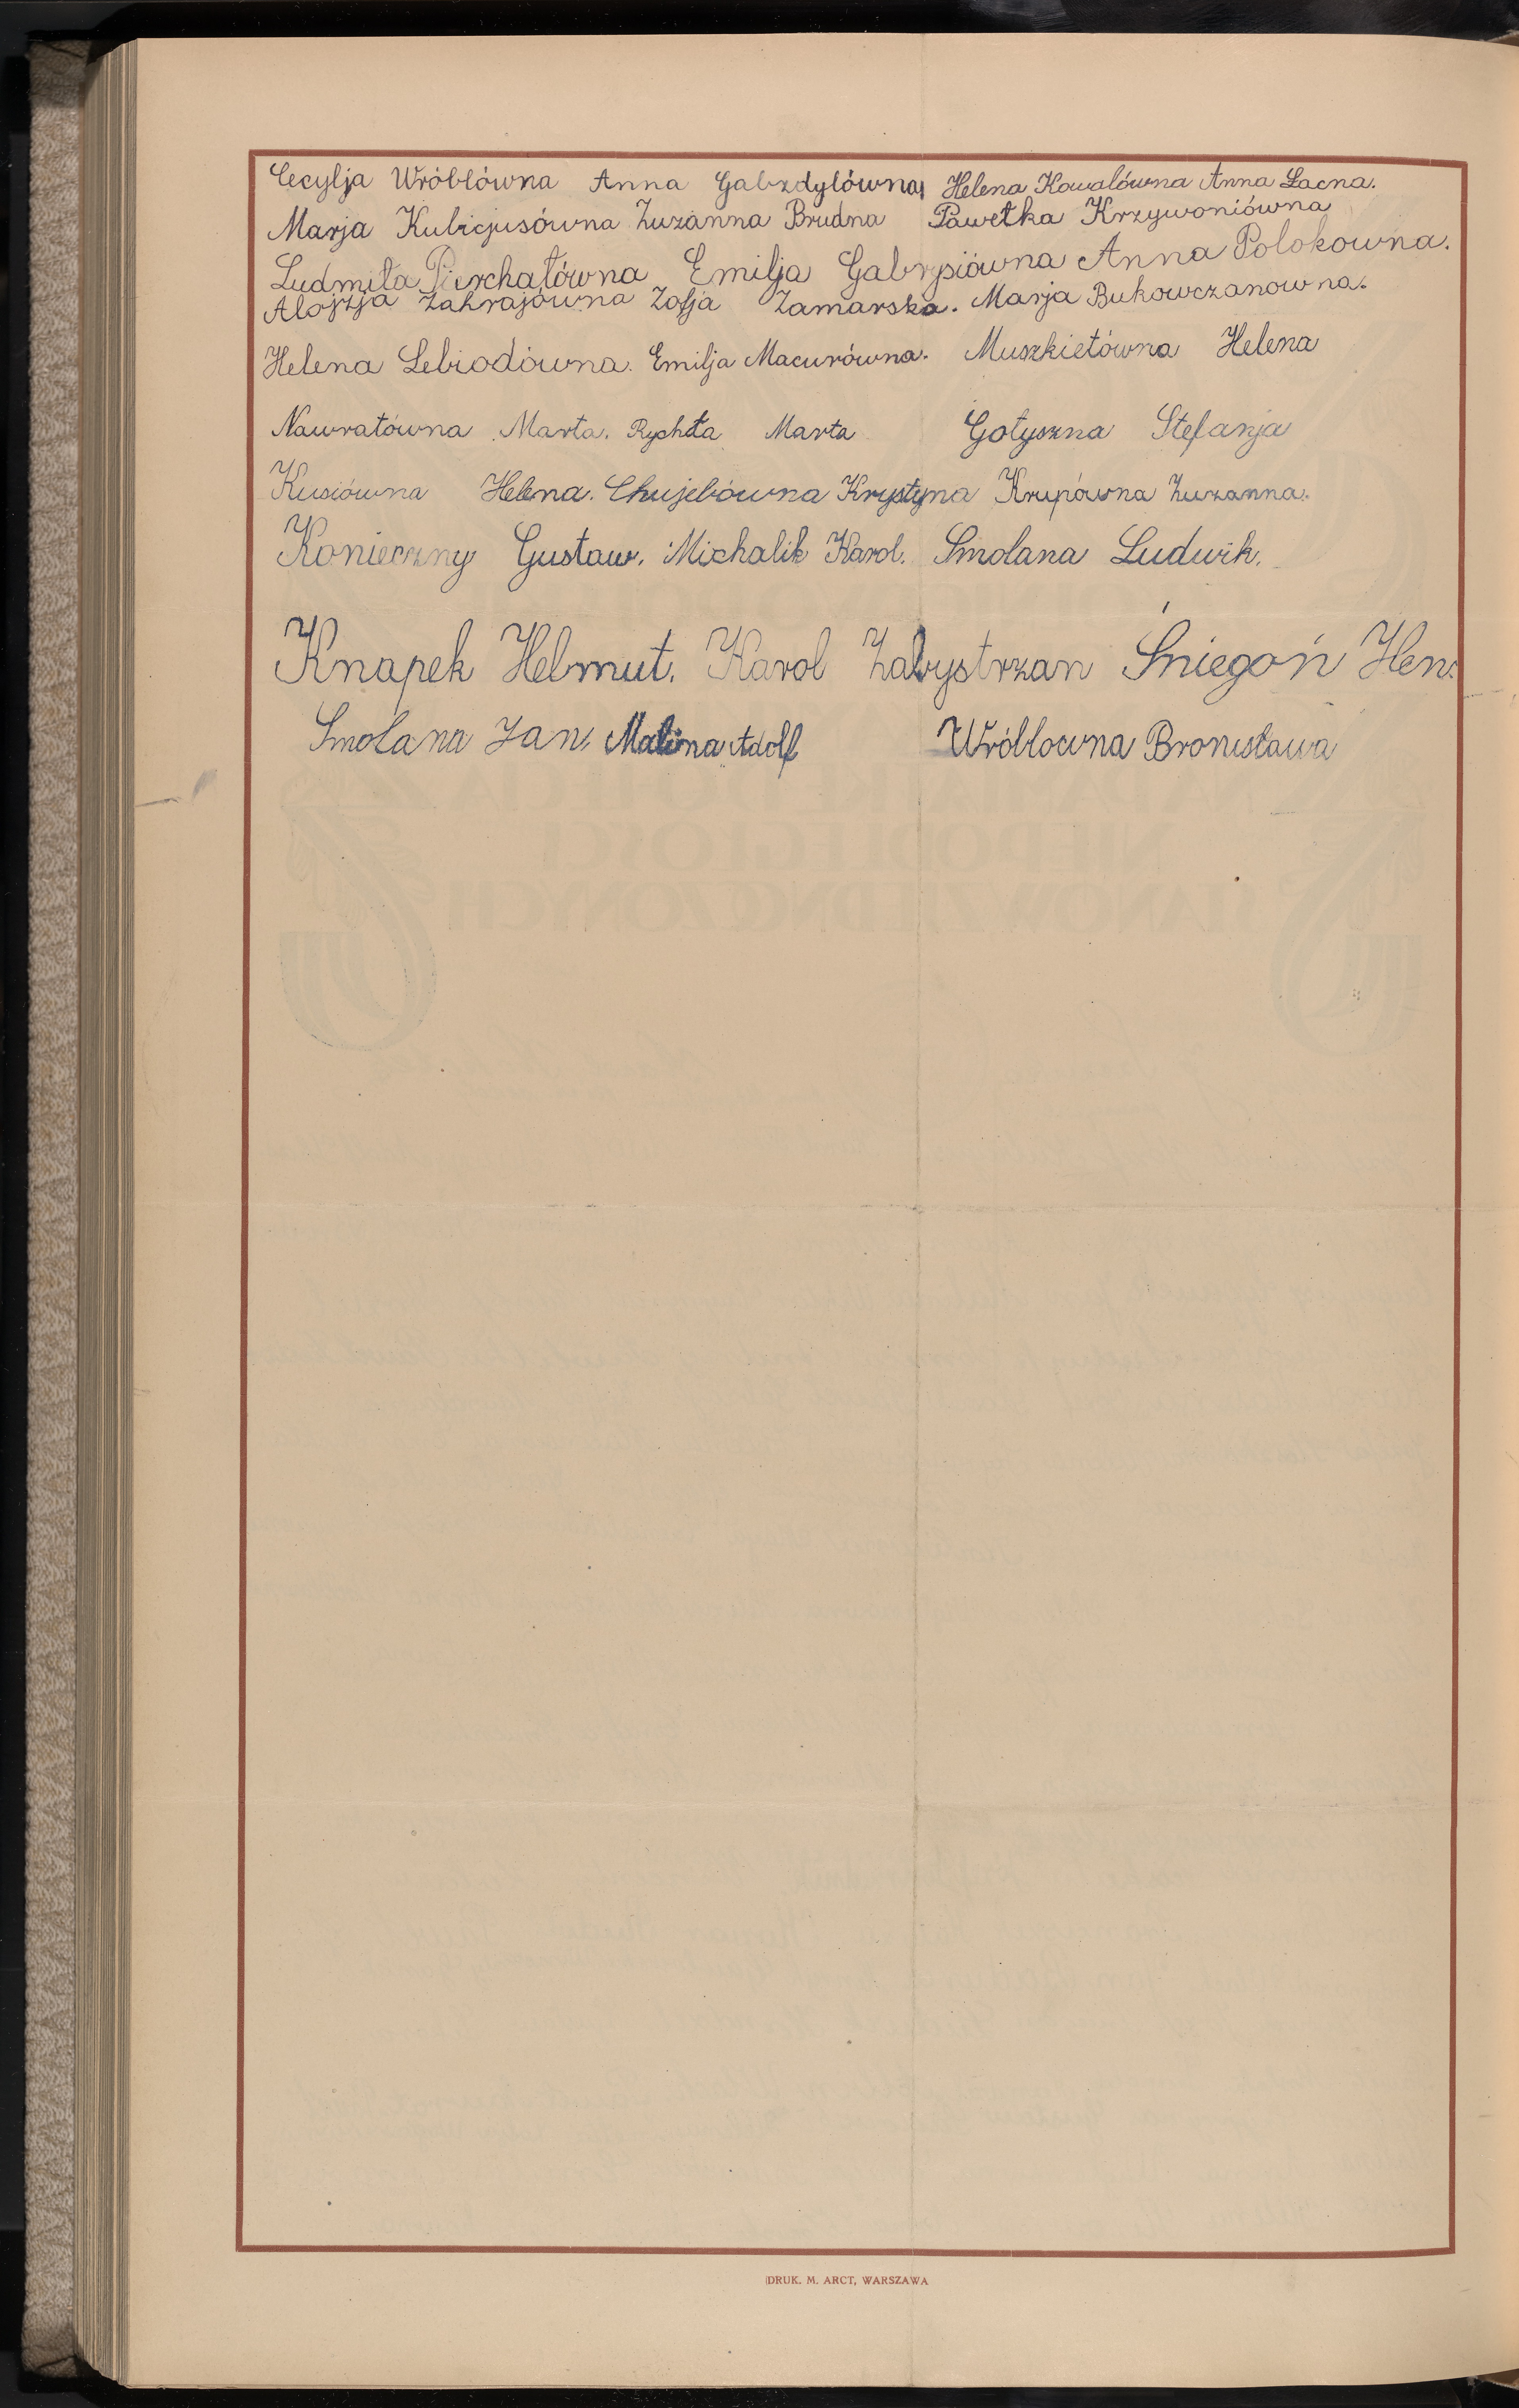 Cecylja Wróblówna Anna Gabzdylówna Helena Kowalówna Anna Łacna.
Marja Kubicjusówna Zuzanna Brudna Pawełka Krzywoniówna
Ludmiła Pierchałówna Emilja Gabrysiówna Anna Polokowna.
Alojzja Zahrajówna Zofja Zamarska. Marja Bukowczanowna.
Helena Lebiodówna. Emilja Macurówna. Muszkietówna Helena
Nawratówna Marta. Rychta Marta Gołyszna Stefanja
Kusiówna Helena. Chujebówna Krystyna Krupówna Zuzanna.
Konieczny Gustaw. Michalik Karol. Smolana Ludwik.
Knapek Helmut. Karol Zabystrzan Śniegoń Hen.
Smolana Jan. Malina Adolf Wróblowna Bronisława
DRUK. M. ARCT, WARSZAWA